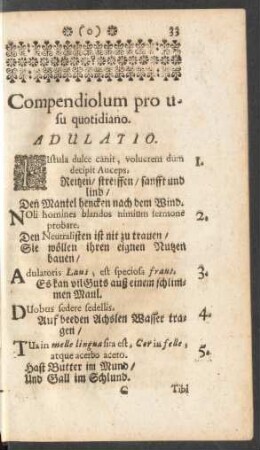 (0) 33
Compendiolum pro u-
su quotidiano.
ADULATIO.
FIstula dulce canit, volucrem dum 1.
decipit Auceps.
Reitzen/ streiffen/ sanfft und
lind/
Den Mantel hencken nach dem Wind.
NOli homines blandos nimium sermone 2.
probare.
Den Neutralisten ist nit zu trauen/
Sie wöllen ihren eignen Nutzen
bauen/
Adulatoris Laus, est speciosa fraus. 3.
Es kan vil Guts auß einem schlim-
men Maul.
DUobus sedere sedellis. 4.
Auf beeden Achslen Wasser tra-
gen/
TUa in melle lingua sita est, Cor in felle, 5.
atque acerbo aceto.
Hast Butter im Mund/
Und Gall im Schlund.
C Tibi